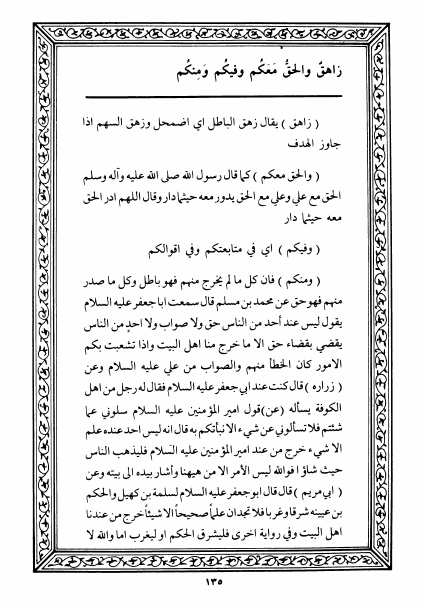 زاهقٌ والحقُّ مَعَكُم وفيكُم وَمِنكُم
( زاهق ) يقال زهق الباطل اي اضمحل وزهق السهم اذا
جاوز الهدف
( والحق معكم ) كما قال رسول الله صلى الله عليه وآله وسلم
الحق مع علي وعلي مع الحق يدور معه حيثما دار وقال اللهم ادر الحق
معه حيثما دار
( وفيكم ) اي في متابعتكم وفي اقوالكم
( ومنكم ) فان كل ما لم يخرج منهم فهو باطل وكل ما صدر
منهم فهو حق عن محمد بن مسلم قال سمعت ابا جعفر عليه السلام
يقول ليس عند أحد من الناس حق ولا صواب ولا احدٍ من الناس
يقضي بقضاء حق الا ما خرج منا اهل البيت واذا تشعبت بكم
الامور كان الخطأ منهم والصواب من علي عليه السلام وعن
( زراره ) قال كنت عند ابي جعفر عليه السلام فقال له رجل من اهل
الكوفة يسأله (عن) قول امير المؤمنين عليه السلام سلوني عما
شئتم فلا تسألوني عن شيء الا نبأتكم به قال انه ليس احد عنده علم
الا شيء خرج من عند امير المؤمنين عليه السلام فليذهب الناس
حيث شاؤا فوالله ليس الأمر الا من هيهنا وأشار بيده الى بيته وعن
( ابي مريم ) قال قال ابو جعفر عليه السلام لسلمة بن كهيل والحكم
بن عيينه شرقا وغربا فلا تجدان علماً صحيحاً الا شيئاً خرج من عندنا
اهل البيت وفي رواية اخرى فليشرق الحكم او ليغرب اما والله لا
١٣٥